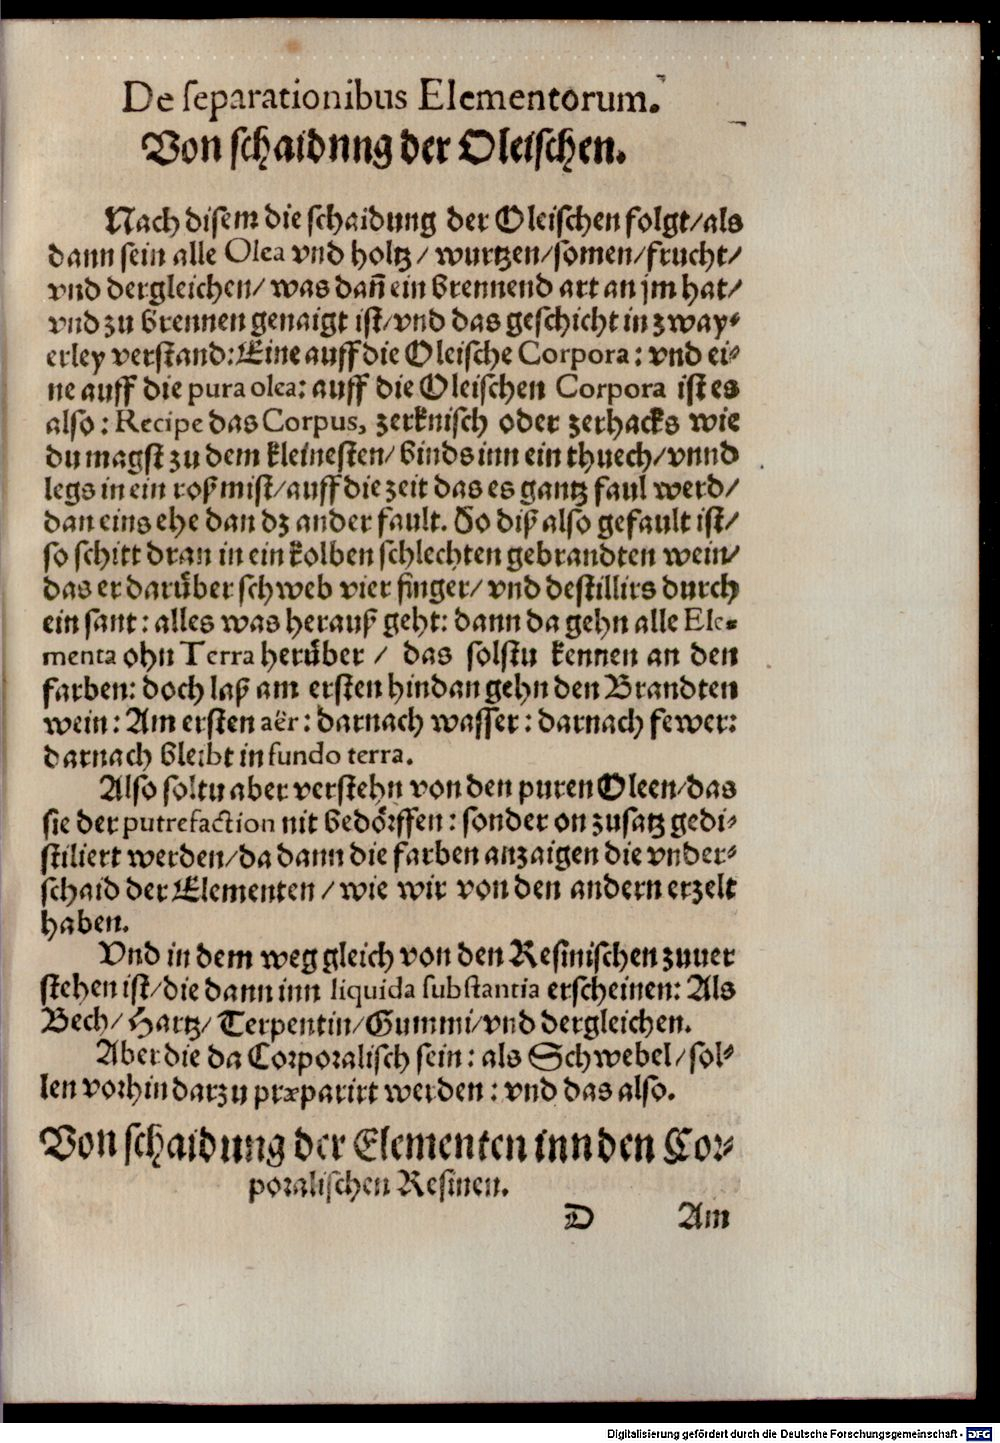 De separationibus Elementorum.
Von schaidnng der Oleischen.
Nach disem die schaidung der Oleischen folgt/als
dann sein alle Olea vnd holtz/ wurtzen/somen/frucht/
vnd dergleichen/ was dañ ein brennend art an jm hat/
vnd zu brennen genaigt ist/vnd das geschicht in zway-
erley verstand: Eine auff die Oleische Corpora: vnd ei-
ne auff die pura olea: auff die Oleischen Corpora ist es
also: Recipe das Corpus, zerknisch oder zerhacks wie
du magst zu dem kleinesten/ binds inn ein thuech/vnnd
legs in ein roß mist/auff die zeit das es gantz faul werd/
dan eins ehe dan dz ander fault. So diß also gefault ist/
so schitt dran in ein kolben schlechten gebrandten wein/
das er darüber schweb vier finger/ vnd destillirs durch
ein sant: alles was herauß geht: dann da gehn alle Ele-
menta ohn Terra herüber / das solstu kennen an den
farben: doch laß am ersten hindan gehn den Brandten
wein: Am ersten aër: darnach wasser: darnach fewer:
darnach bleibt in fundo terra.
Also soltu aber verstehn von den puren Oleen/das
sie der putrefaction nit bedörffen: sonder on zusatz gedi-
stiliert werden/da dann die farben anzaigen die vnder-
schaid der Elementen/wie wir von den andern erzelt
haben.
Vnd in dem weg gleich von den Resinischen zuuer
stehen ist/die dann inn liquida substantia erscheinen: Als
Bech/ Hartz/ Terpentin/Gummi/vnd dergleichen.
Aber die da Corporalisch sein: als Schwebel/sol-
len vorhin darzu præparirt werden: vnd das also.
Von schaidung der Elementen inn den Cor-
poralischen Resinen.
D Am
Digitalisierung gefördert durch die Deutsche Forschungsgemeinschaft - DFG